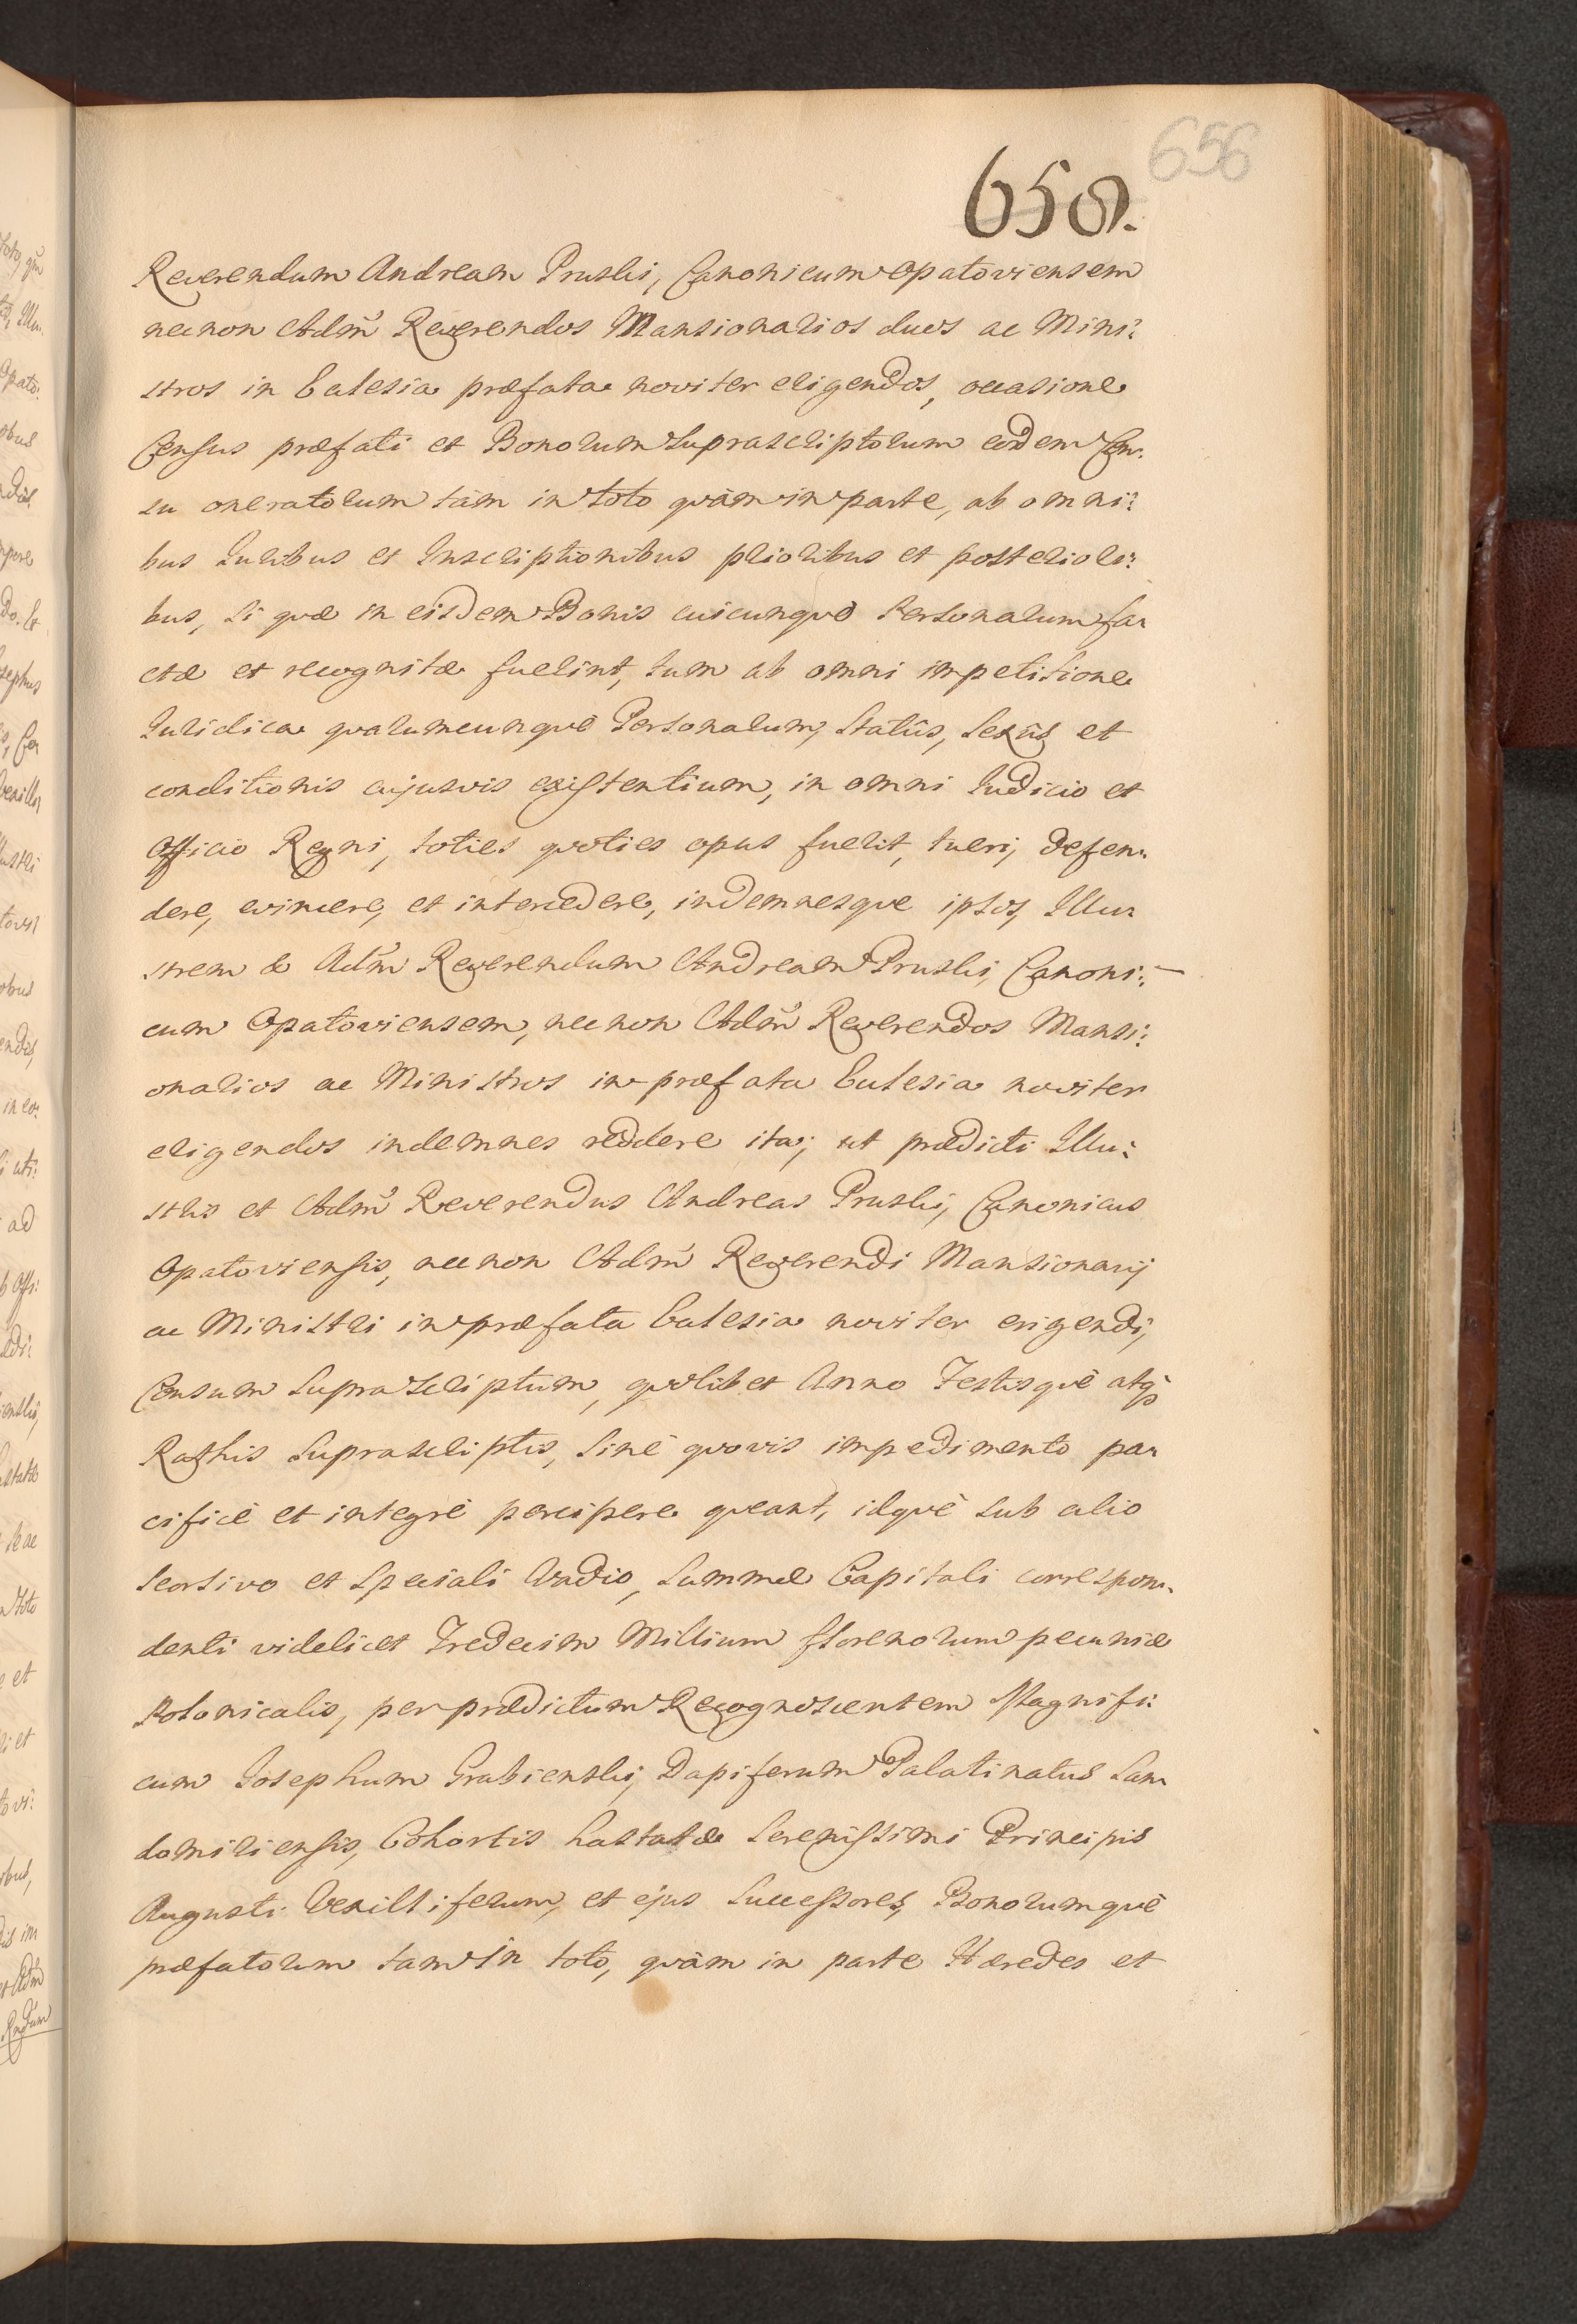 656
658.
Reverendum Andream Pruski, Canonicum Opatoviensem
necnon Adm̃ Reverendos Mansionarios duos ac Mini:
stros in Ecclesia præfata noviter erigendos, occasione
Censûs præfati et Bonorum Suprascriptorum eodem Cen:
su oneratorum tàm in toto quàm in parte, ab omni:
bus Iuribus et Inscriptionibus prioribus et posteriori:
bus, si quæ in eisdem Bonis cuicunque Personarum fa:
ctæ et recognitæ fuerint, tum ab omni impetitione
Iuridica quarumcunquè Personarum, Statûs, Sexûs et
conditionis cujusvis existentium, in omni Iudicio et
Officio Regni, toties quoties opus fuerit, tueri, defen:
dere, evincere, et intercedere, indemnesque ipsos, Illu:
strem & Adm̃ Reverendum Andream Pruski, Canoni:
cum Opatoviensem, necnon Adm̃ Reverendos Mansi:
onarios ac Ministros in præfata Ecclesia noviter
erigendos indemnes reddere ita, ut prædicti Illu:
stris et Adm̃ Reverendus Andreas Pruski, Canonicus
Opatoviensis, necnon Adm̃ Reverendi Mansionarij
ac Ministri in præfata Ecclesia noviter erigendi,
Censum Suprascriptum, quolibet Anno Festisquè atq̃
Rathis Suprascriptis, sinè quovis impedimento pa:
cificè et integrè percipere queant, idquè sub alio
seorsivo et speciali Vadio, Summæ Capitali correspon:
denti videlicet Tredecim Millium florenorum pecuniæ
Polonicalis, per prædictum Recognoscentem Magnifi:
cum Iosephum Grabienski, Dapiferum Palatinatus San:
domiriensis, Cohortis hastatæ Serenissimi Principis
Augusti Vexilliferum, et ejus Successores, Bonorumquè
præfatorum tam in toto, quàm in parte Hæredes et